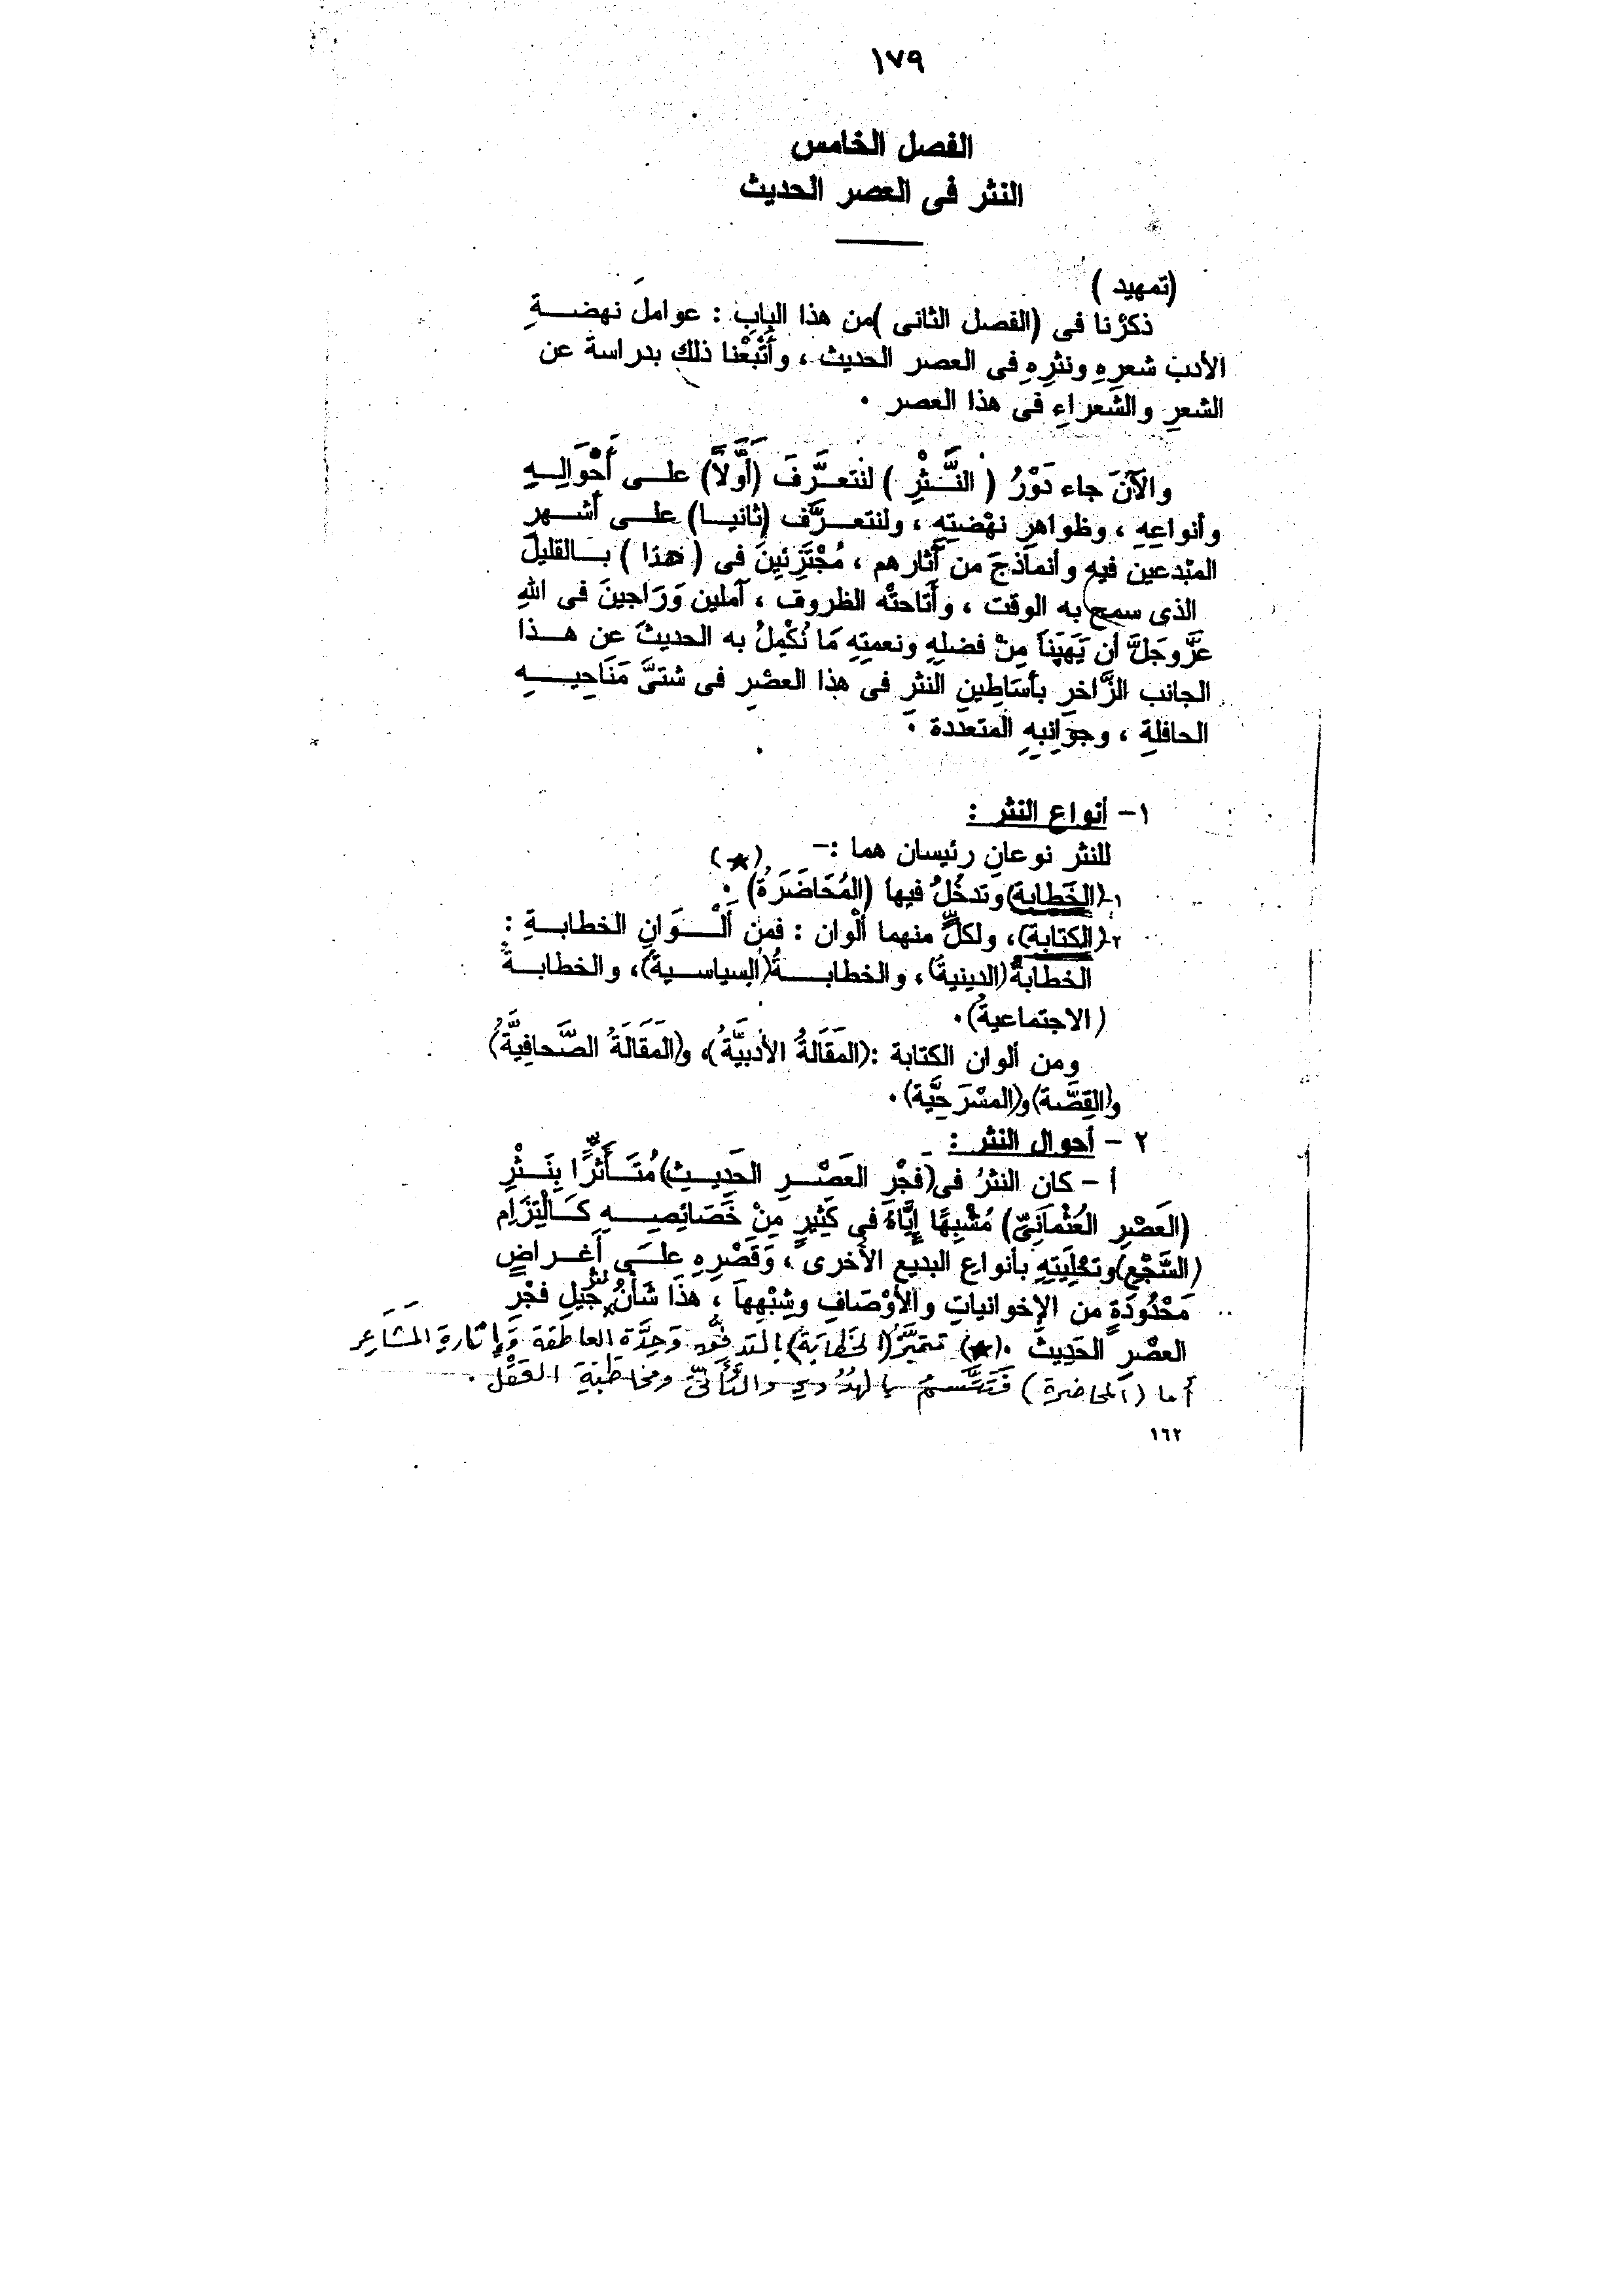 ١٧٩
الفصل الخامس
النثر فى العصر الحديث
(تمهيد)
ذكرْنا فى (الفصل الثانى) من هذا البابِ : عواملَ نهضــةِ
الأدبِ شعرِهِ ونثرِهِ فى العصر الحديث ، وأَتْبَعْنا ذلك بدراسة عن
الشعرِ والشعراءِ فى هذا العصر .
والآنَ جاء دَوْرُ ( النَّــثْرِ ) لنتعــرَّفَ (أَوَّلاً) علــى أَحْوَالِــهِ
وأنواعِهِ ، وظواهرِ نهْضتِهِ ، ولنتعــرَّف (ثانيــا) علــى أشــهرِ
المبْدعين فيهِ وأنماذجَ من آثارهم ، مُجْتَزِئينَ فى ( هذا ) بــالقليلِ
الذى سمح به الوقت ، وأَتاحتْه الظروف ، آملين وَرَاجينَ فى اللهِ
عَزَّوجَلَّ أن يَهَبَنَا مِنْ فضلِهِ ونعمتِهِ مَا نُكْمِلُ به الحديثَ عن هــذا
الجانب الزَّاخرِ بأسَاطِينِ النثرِ فى هذا العصْرِ فى شتىَّ مَنَاحِيــهِ
الحافلةِ ، وجوَانبِهِ المتعددة .
١- أنواع النثر :
للنثر نوعانِ رئيسان هما :-
١-(الخَطابة) وتدخُلُ فيها (المُحَاضَرَةُ) . (★)
٢-(الكتابة)، ولكلٍّ منهما ألْوان : فمن أَلْــوَانِ الخطابــةِ :
الخطابةُ (الدينيةُ) ، والخطابــةُ (السياســيةُ)، والخطابــةُ
(الاجتماعيةُ) .
ومن ألوان الكتابة : (المقَالةُ الأدَبيَّةُ)، و(المَقَالَةُ الصَّحافِيَّةُ)
و(القِصَّة) و(المسْرَحِيَّة) .
٢ - أحوال النثر :
أ - كان النثرُ فى (فجْرِ العَصْــرِ الحَدِيــثِ) مُتَــأَثِّرًا بِنَــثْرِ
(العَصْرِ العُثْمَانِىِّ) مُشْبِهًا إيَّاهُ فى كَثِيرٍ مِنْ خَصَائِصِــهِ كَــالْتِزَامِ
(السَّجْعِ) وتحْلِيَتِهِ بأنواعِ البديعِ الأخرى ، وَقَصْرِهِ علــَى أَغــراضٍ
مَحْدُودَةٍ من الإخوانياتِ والأوْصَافِ وشِبْهِهاَ ، هذَا شَأنُ نثر جِيَلِ فجْرِ
العصْرِ الحَدِيثَ . (★) تتميَّزُ (الخَطابَةُ) بالتدفُّقِ وَحِدَّةِ العاطفةِ وَإثارةِ المشَاعِر
أما (المحاضرة) فَتَتَّسِمُ بالهُدُوءِ والتَّأَنِّى ومخاطَبَةِ العَقْل .
١٦٢